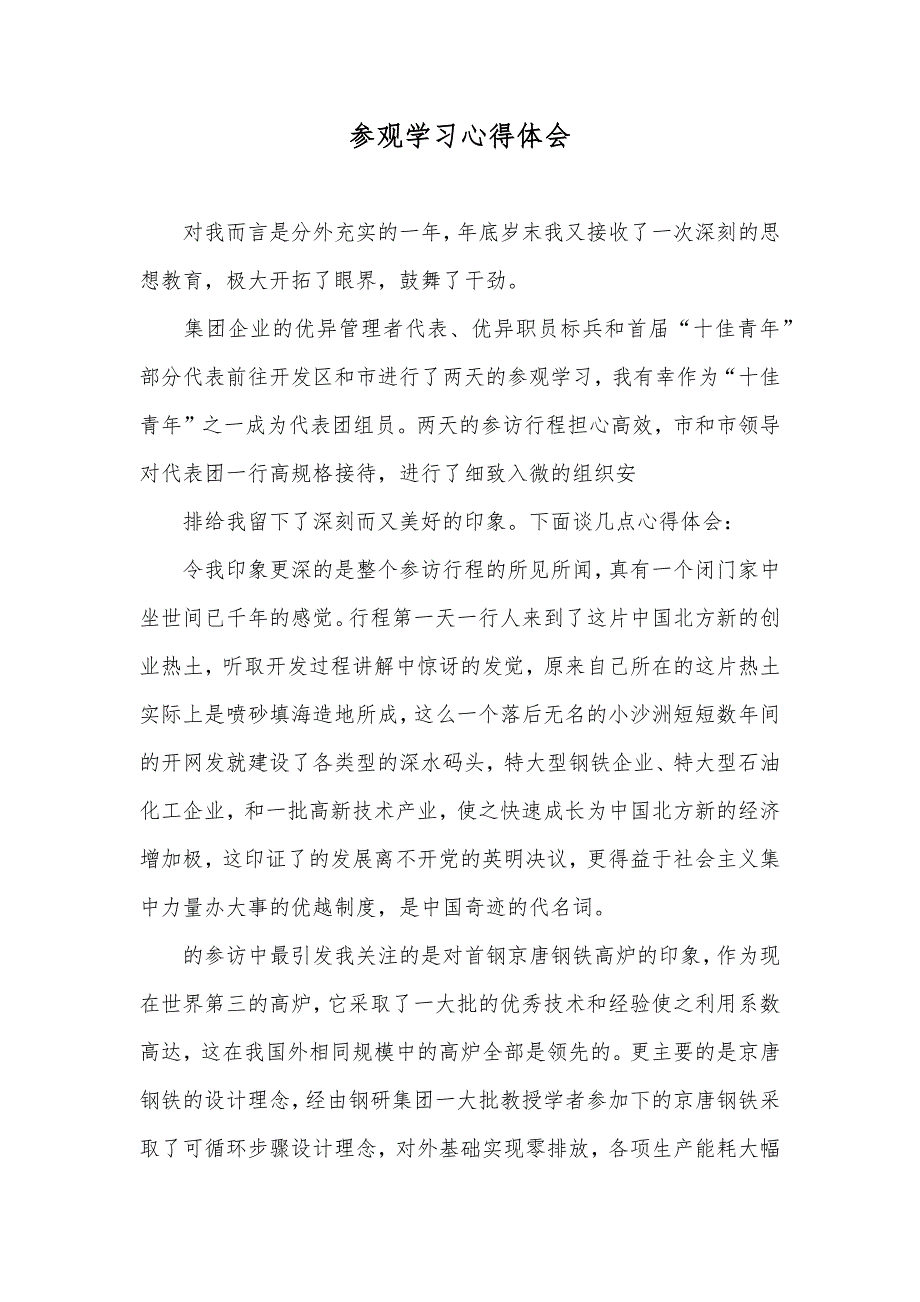 参观学习心得体会
对我而言是分外充实的一年，年底岁末我又接收了一次深刻的思
想教育，极大开拓了眼界，鼓舞了干劲。
集团企业的优异管理者代表、优异职员标兵和首届“十佳青年”
部分代表前往开发区和市进行了两天的参观学习，我有幸作为“十佳
青年”之一成为代表团组员。两天的参访行程担心高效，市和市领导
对代表团一行高规格接待，进行了细致入微的组织安
排给我留下了深刻而又美好的印象。下面谈几点心得体会：
令我印象更深的是整个参访行程的所见所闻，真有一个闭门家中
坐世间已千年的感觉。行程第一天一行人来到了这片中国北方新的创
业热土，听取开发过程讲解中惊讶的发觉，原来自己所在的这片热土
实际上是喷砂填海造地所成，这么一个落后无名的小沙洲短短数年间
的开网发就建设了各类型的深水码头，特大型钢铁企业、特大型石油
化工企业，和一批高新技术产业，使之快速成长为中国北方新的经济
增加极，这印证了的发展离不开党的英明决议，更得益于社会主义集
中力量办大事的优越制度，是中国奇迹的代名词。
的参访中最引发我关注的是对首钢京唐钢铁高炉的印象，作为现
在世界第三的高炉，它采取了一大批的优秀技术和经验使之利用系数
高达，这在我国外相同规模中的高炉全部是领先的。更主要的是京唐
钢铁的设计理念，经由钢研集团一大批教授学者参加下的京唐钢铁采
取了可循环步骤设计理念，对外基础实现零排放，各项生产能耗大幅